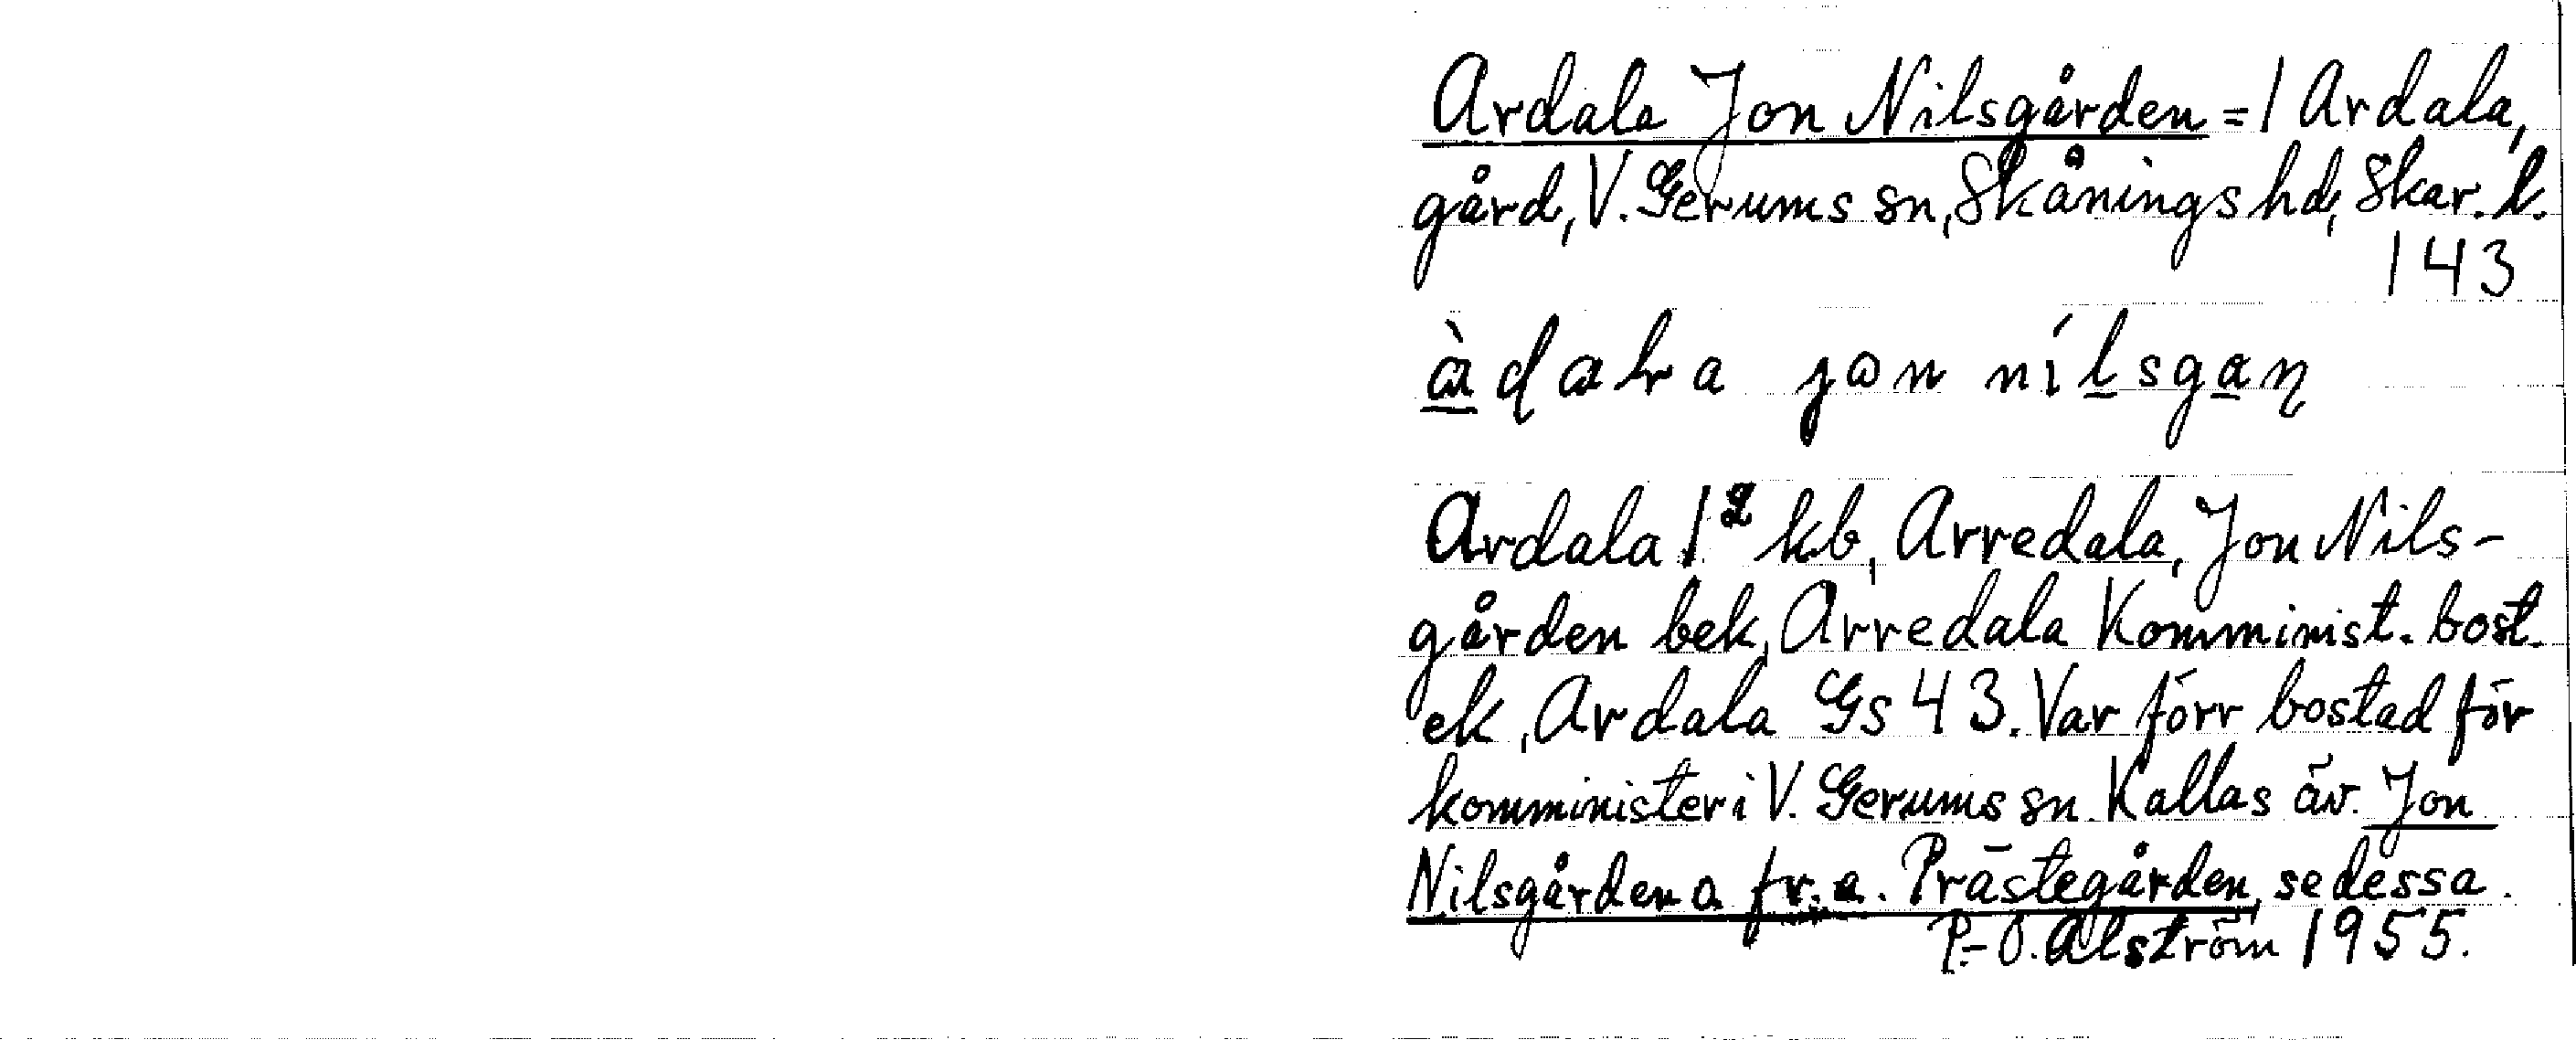 Ardala Jon Nilsgården = 1 Ardala,
gård, V. Gerums sn, Skånings hd, Skar. l.
143
àdaLa jɷn nílsgaɳ
Ardala 1² kb, Arredala, Jon Nils-
gården bek, Arredala Komminist. bost.
ek, Ardala Gs 43. Var förr bostad för
komminister i V. Gerums sn. Kallas äv. Jon
Nilsgården a fr. a. Prästegården, se dessa.
P.-O. Alström 1955.